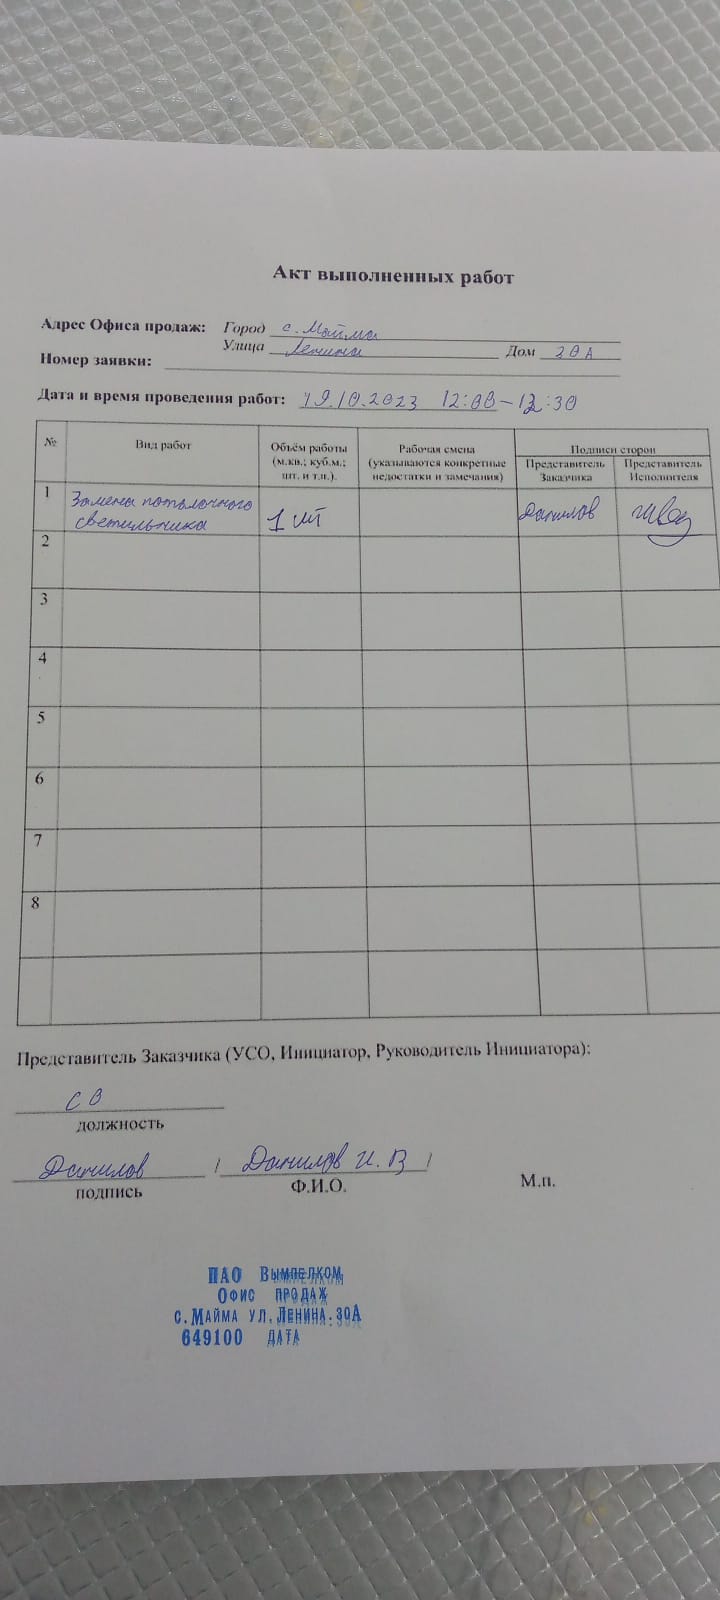 Акт выполненных работ
Адрес Офиса продаж: Город с. Майма
Улица Ленина Дом 20А
Номер заявки:
Дата и время проведения работ: 19.10.2023 12:00-12:30
№ Вид работ Объём работы (м.кв.; куб.м.; шт. и т.п.). Рабочая смена (указываются конкретные недостатки и замечания) Подписи сторон
Представитель Заказчика Представитель Исполнителя
1 Замена потолочного светильника 1 шт Данилов
2
3
4
5
6
7
8
Представитель Заказчика (УСО, Инициатор, Руководитель Инициатора):
СО
должность
Данилов / Данилов И.В /
подпись Ф.И.О. М.п.
ПАО Вымпелком
Офис продаж
с.Майма ул.Ленина.30А
649100 дата